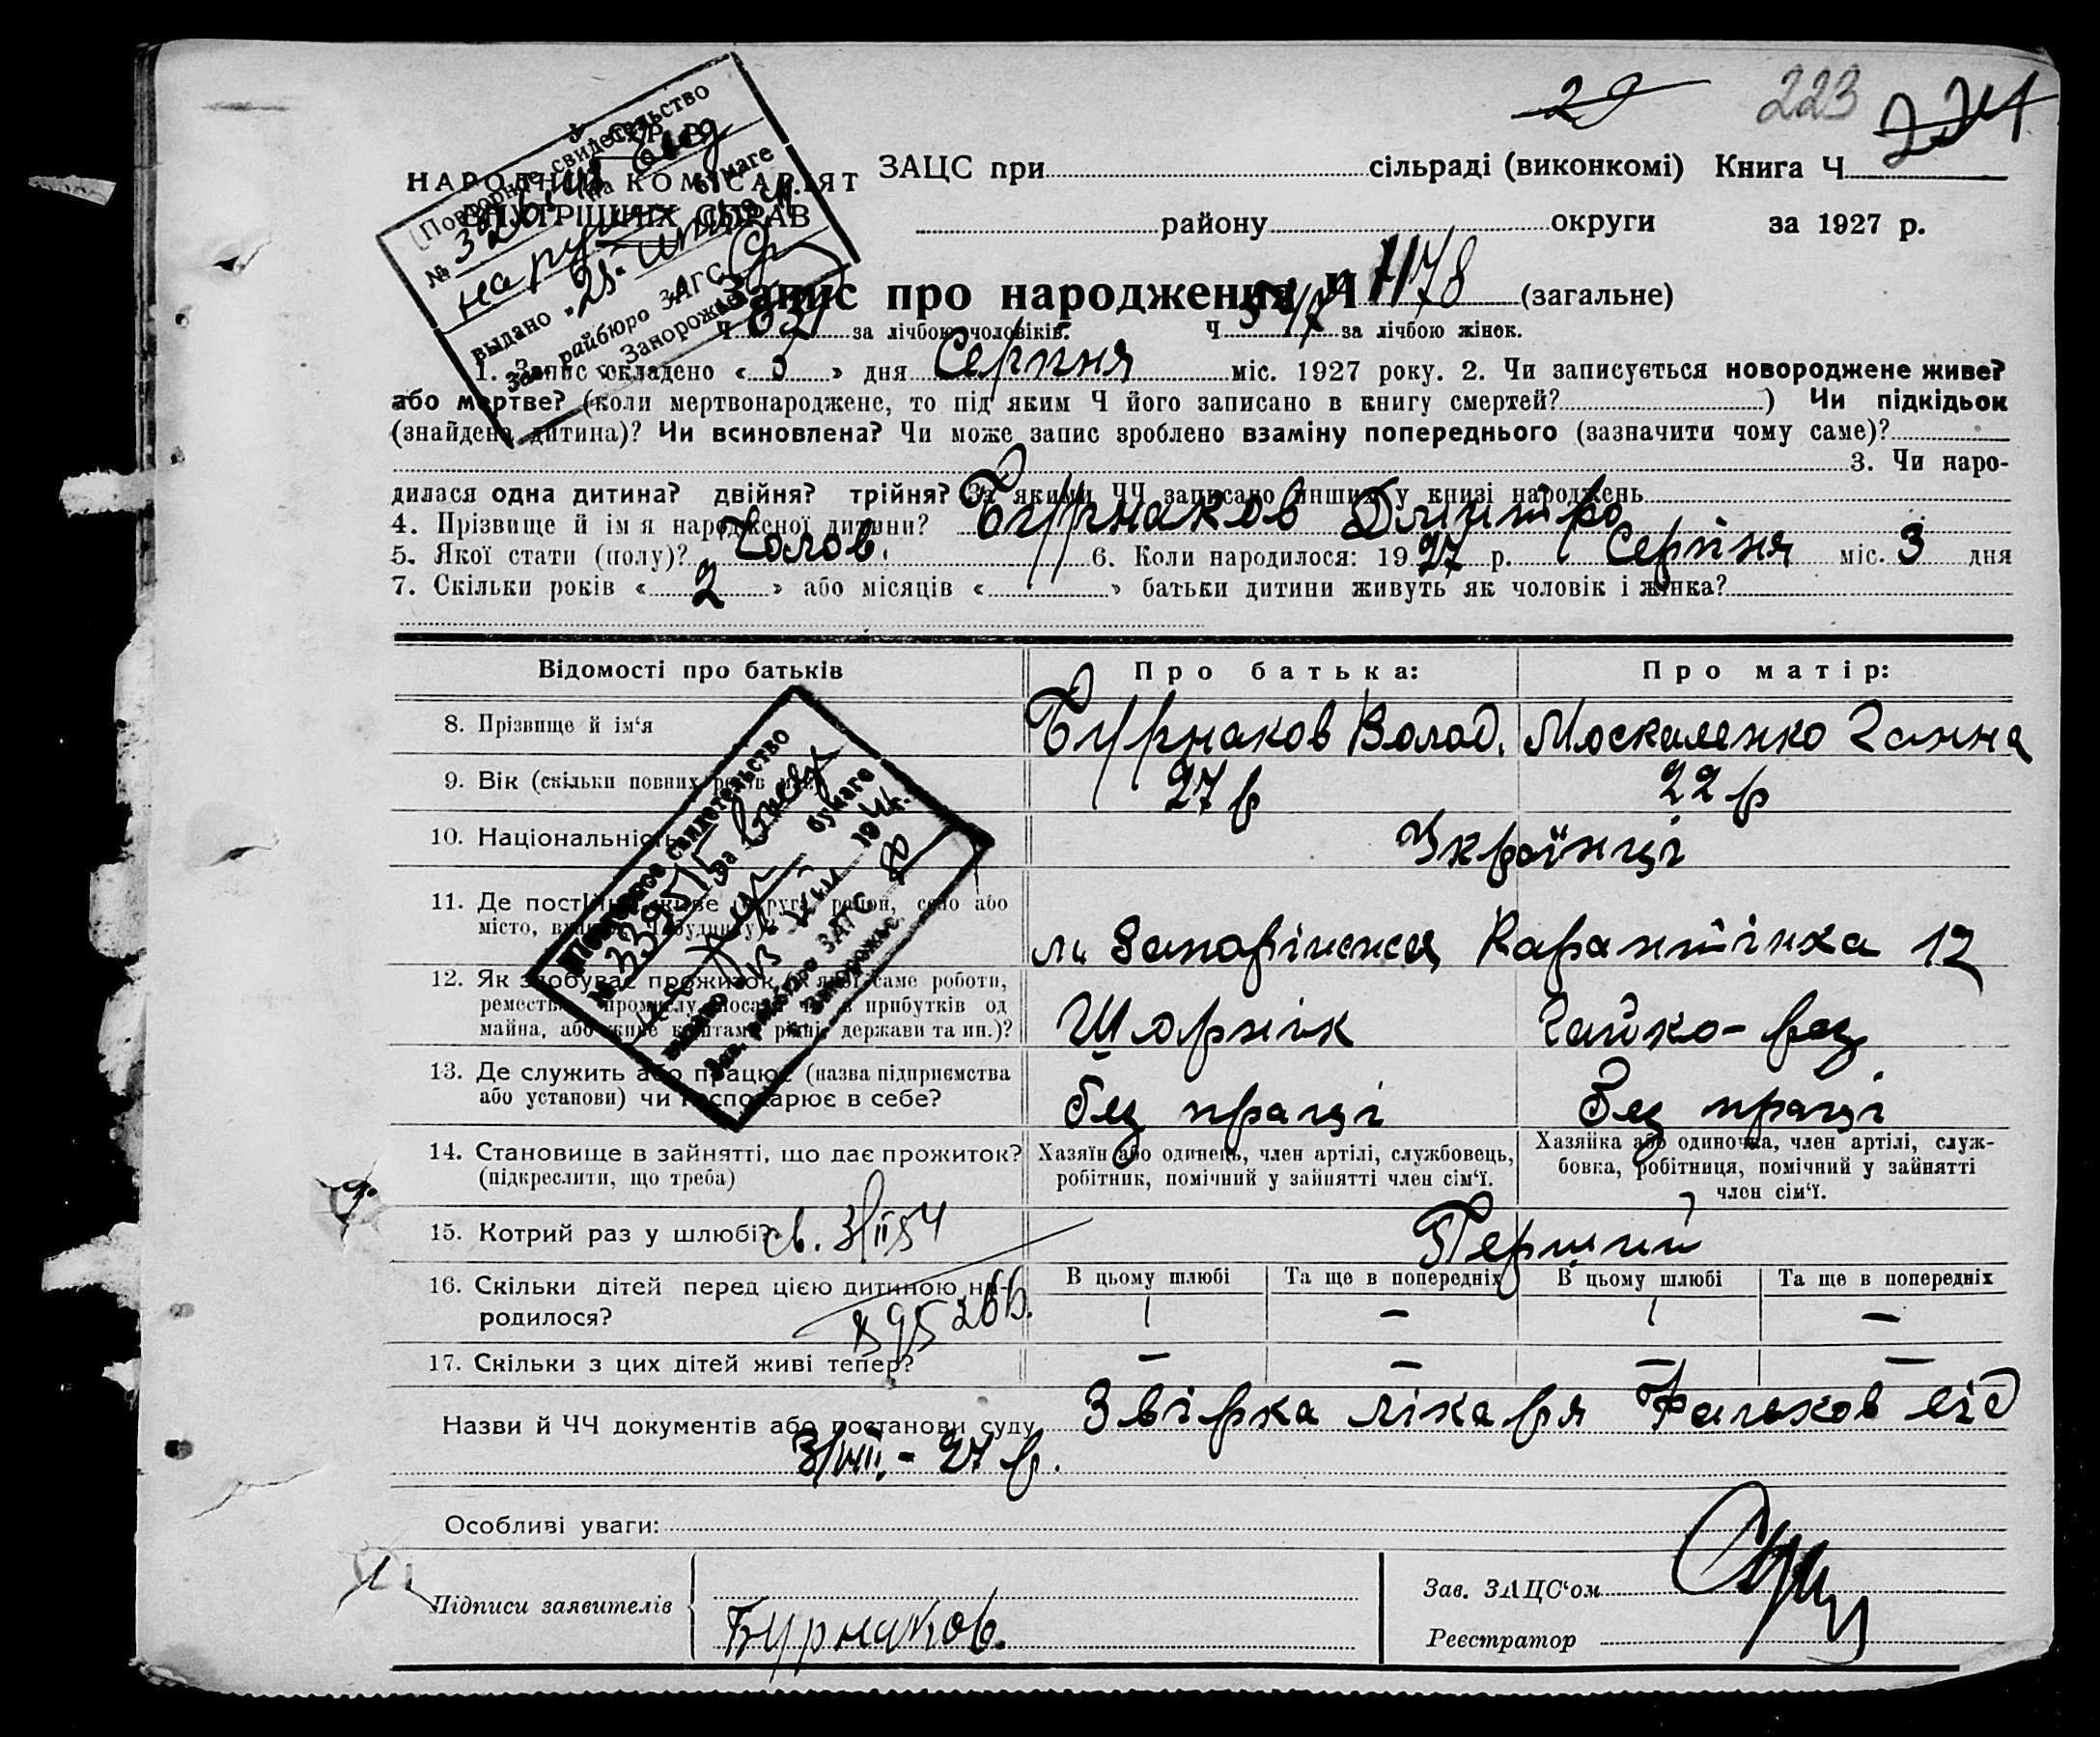 29 223 224
У. С. Р. Р.
НАРОДНИЙ КОМІСАРІЯТ
ВНУТРІШНІХ СПРАВ
ЗАЦС при сільраді (виконкомі) Книга Ч
району округи за 1927 р.
Повторное свидетельство
№ на бумаге
выдано
Зав. райбюро ЗАГС
Запорожье
Запис про народження Ч 1178 (загальне)
Ч 631 за лічбою чоловіків. Ч 547 за лічбою жінок.
1. Запис складено « 3 » дня Серпня міс. 1927 року. 2. Чи записується новороджене живе?
або мертве? (коли мертвонароджене, то під яким Ч його записано в книгу смертей? ) Чи підкідьок
(знайдена дитина)? Чи всиновлена? Чи може запис зроблено взаміну попереднього (зазначити чому саме)?
3. Чи наро-
дилася одна дитина? двійня? трійня? За якими ЧЧ записано инших у книзі народжень
4. Прізвище й ім'я народженої дитини? Бурнаков Дмитро
5. Якої стати (полу)? Чолов. 6. Коли народилося: 1927 р. Серпня міс. 3 дня
7. Скільки років « 2 » або місяців « » батьки дитини живуть як чоловік і жінка?
Відомості про батьків Про батька: Про матір:
8. Прізвище й ім'я Бурнаков Волод. Москаленко Ганна
9. Вік (скільки повних років має) 27 р 22 р
10. Національність Українці
11. Де постійно живе (округа, район, село або
місто, вулиця, Ч будинку)? м. Запоріжжя Карантінка 12
12. Як здобуває прожиток, з якої саме роботи,
ремества, промислу, посади, чи з прибутків од
майна, або живе коштами рідні, держави та ин.)? Шорнік Чайко-роз
13. Де служить або працює (назва підприємства
або установи) чи господарює в себе? без праці Без праці
Повторное свидетельство
№ 33951 на бумаге
выдано 13 194 г.
Зав. райбюро ЗАГС
Запорожье
14. Становище в зайнятті, що дає прожиток?
(підкреслити, що треба)
Хазяїн або одинець, член артілі, службовець,
робітник, помічний у зайнятті член сім'ї.
Хазяйка або одиночка, член артілі, служ-
бовка, робітниця, помічний у зайнятті
член сім'ї.
15. Котрий раз у шлюбі? св. 3/II 54 Перший
16. Скільки дітей перед цією дитиною на-
родилося?
В цьому шлюбі Та ще в попередніх В цьому шлюбі Та ще в попередніх
1 — 1 —
17. Скільки з цих дітей живі тепер? — — — —
Назви й ЧЧ документів або постанови суду Звірка лікаря Фальков від
3/VIII - 27 р.
Особливі уваги:
Підписи заявителів Бурнаков.
Зав. ЗАЦС'ом
Реєстратор